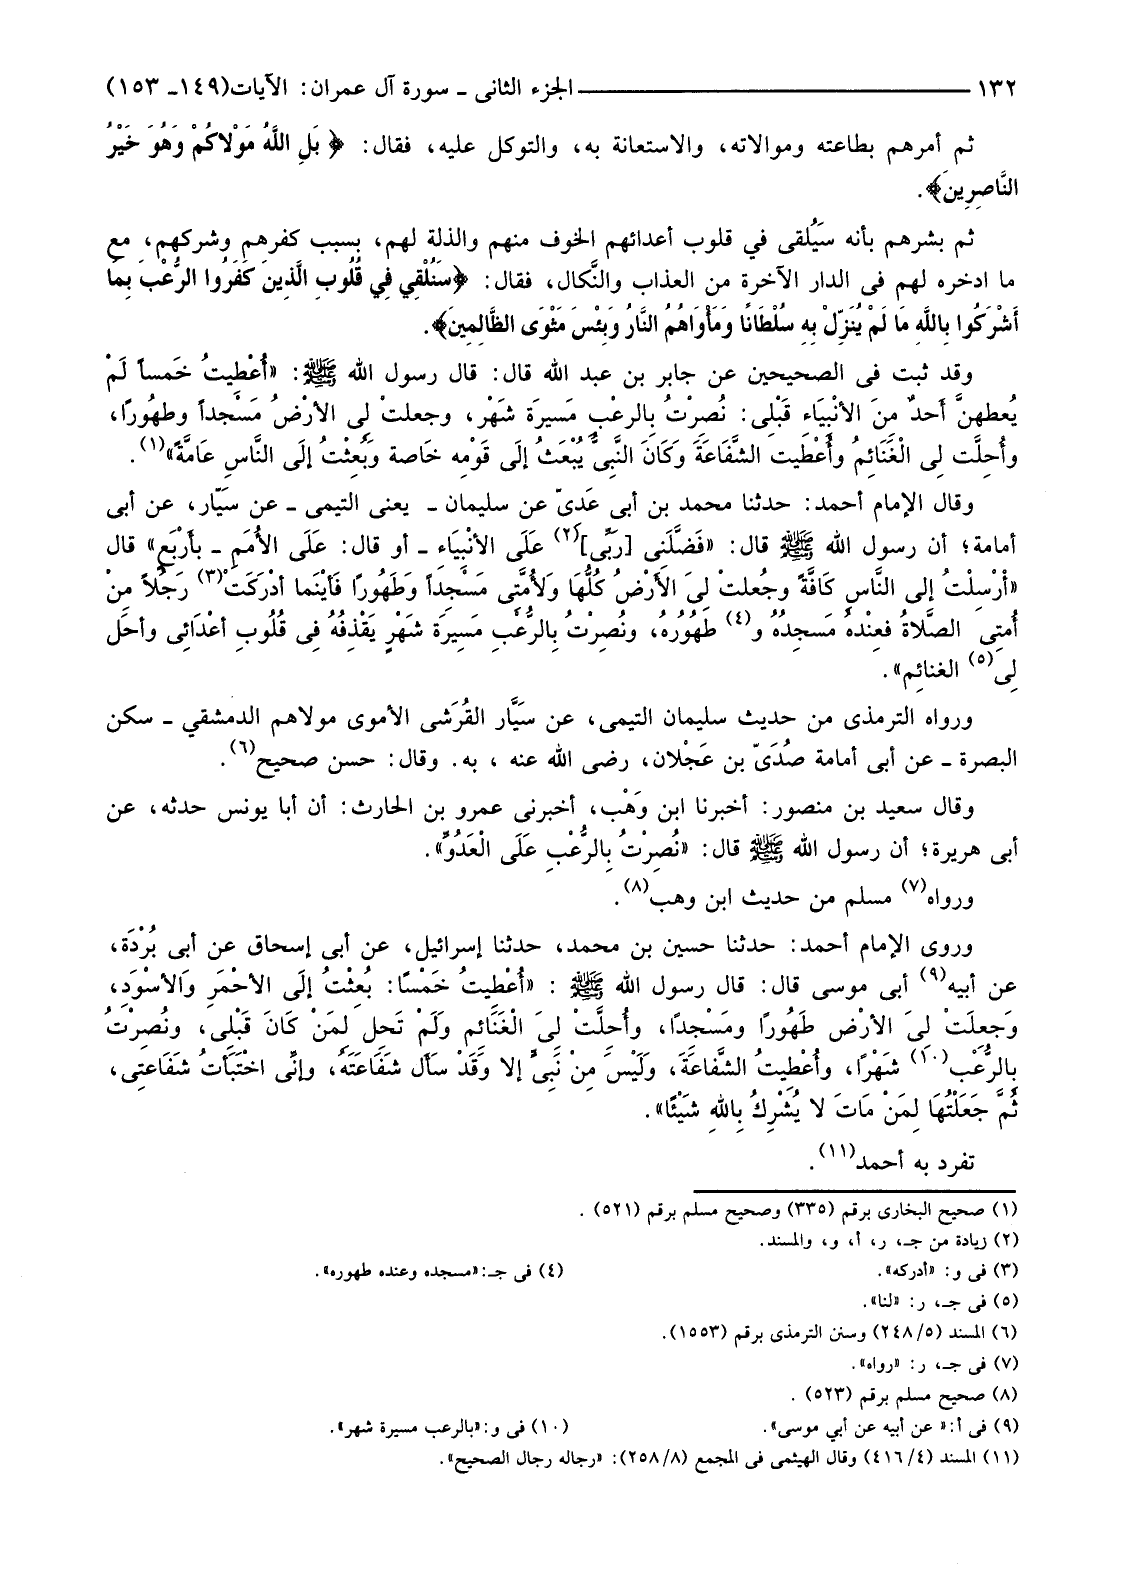 ١٣٢ ـــــــــــــــــــــ الجزء الثانى ـ سورة آل عمران: الآيات(١٤٩ـ ١٥٣)
ثم أمرهم بطاعته وموالاته، والاستعانة به، والتوكل عليه، فقال: ﴿ بَلِ اللَّهُ مَوْلاكُمْ وَهُوَ خَيْرُ
النَّاصِرِينَ﴾.
ثم بشرهم بأنه سَيُلقى في قلوب أعدائهم الخوف منهم والذلة لهم، بسبب كفرهم وشركهم، مع
ما ادخره لهم فى الدار الآخرة من العذاب والنَّكال، فقال: ﴿سَنُلْقِي فِي قُلُوبِ الَّذِينَ كَفَرُوا الرُّعْبَ بِمَا
أَشْرَكُوا بِاللَّهِ مَا لَمْ يُنَزِّلْ بِهِ سُلْطَانًا وَمَأْوَاهُمُ النَّارُ وَبِئْسَ مَثْوَى الظَّالِمِينَ﴾.
وقد ثبت فى الصحيحين عن جابر بن عبد الله قال: قال رسول الله ﷺ: «أُعْطِيتُ خَمساً لَمْ
يُعطهنَّ أَحدٌ منَ الأنْبِيَاء قَبْلِى: نُصِرْتُ بِالرعْبِ مَسيرَةَ شَهْر، وجعلتْ لِى الأرْضُ مَسْجداً وطهُورًا،
وأُحِلَّت لِى الْغَنَائِمُ وأُعْطِيت الشَّفَاعَةَ وَكَانَ النَّبِىُّ يُبْعَثُ إلَى قَوْمِه خَاصة وَبُعِثْتُ إلَى النَّاسِ عَامَّةً»(١).
وقال الإمام أحمد: حدثنا محمد بن أبى عَدىّ عن سليمان ـ يعنى التيمى ـ عن سَيَّار، عن أبى
أمامة؛ أن رسول الله ﷺ قال: «فَضَّلَنِى [رَبِّى](٢) عَلَى الأنْبِيَاءِ ـ أو قال: عَلَى الأُمَمِ ـ بأَرْبَعٍ» قال
«أرْسِلْتُ إلى النَّاسِ كَافَّةً وجُعلتْ لِىَ الأَرْضُ كُلُّهَا وَلأُمَّتِى مَسْجِداً وَطَهُورًا فَأيْنَما أدْرَكَتْ(٣) رَجُلاً منْ
أُمتِى الصَّلاةُ فعِنْدهُ مَسجدُهُ و(٤) طَهُورُه، ونُصِرتُ بِالرُّعْبِ مَسِيرَةَ شَهْرٍ يَقْذفُهُ فِى قُلُوبِ أعْدَائى وأحَل
لِى(٥) الغنائِم».
ورواه الترمذى من حديث سليمان التيمى، عن سَيَّار القُرَشى الأموى مولاهم الدمشقي ـ سكن
البصرة ـ عن أبى أمامة صُدَىّ بن عَجْلان، رضى الله عنه ، به. وقال: حسن صحيح(٦).
وقال سعيد بن منصور: أخبرنا ابن وَهْب، أخبرنى عمرو بن الحارث: أن أبا يونس حدثه، عن
أبى هريرة؛ أن رسول الله ﷺ قال: «نُصِرْتُ بِالرُّعْبِ عَلَى الْعَدُوِّ».
ورواه(٧) مسلم من حديث ابن وهب(٨).
وروى الإمام أحمد: حدثنا حسين بن محمد، حدثنا إسرائيل، عن أبى إسحاق عن أبى بُرْدَة،
عن أبيه(٩) أبى موسى قال: قال رسول الله ﷺ : «أُعْطيتُ خَمْسًا: بُعثْتُ إلَى الأحْمَرِ وَالأسْوَدِ،
وَجعِلَتْ لِىَ الأرْض طَهُورًا ومَسْجدًا، وأُحلَّتْ لِىَ الْغَنَائم وَلَمْ تَحل لِمَنْ كَانَ قَبْلِى، ونُصِرْتُ
بِالرُّعْب(١٠) شَهْرًا، وأُعْطيتُ الشَّفاعَةَ، وَلَيْسَ مِنْ نَبِىٍّ إلا وقَدْ سَأَل شفَاعَتَهُ، وإنِّى اخْتَبَأتُ شَفَاعتِى،
ثُمَّ جَعَلْتُهَا لِمَنْ مَاتَ لا يُشْرِكُ بِاللهِ شَيْئًا».
تفرد به أحمد(١١).
(١) صحيح البخارى برقم (٣٣٥) وصحيح مسلم برقم (٥٢١) .
(٢) زيادة من جـ، ر، أ، و، والمسند.
(٣) فى و: «أدركه». (٤) فى جـ:«مسجده وعنده طهوره».
(٥) فى جـ، ر: «لنا».
(٦) المسند (٢٤٨/٥) وسنن الترمذى برقم (١٥٥٣).
(٧) فى جـ، ر: «رواه».
(٨) صحيح مسلم برقم (٥٢٣) .
(٩) فى أ:« عن أبيه عن أبي موسى». (١٠) فى و:«بالرعب مسيرة شهر».
(١١) المسند (٤١٦/٤) وقال الهيثمى فى المجمع (٢٥٨/٨): «رجاله رجال الصحيح».